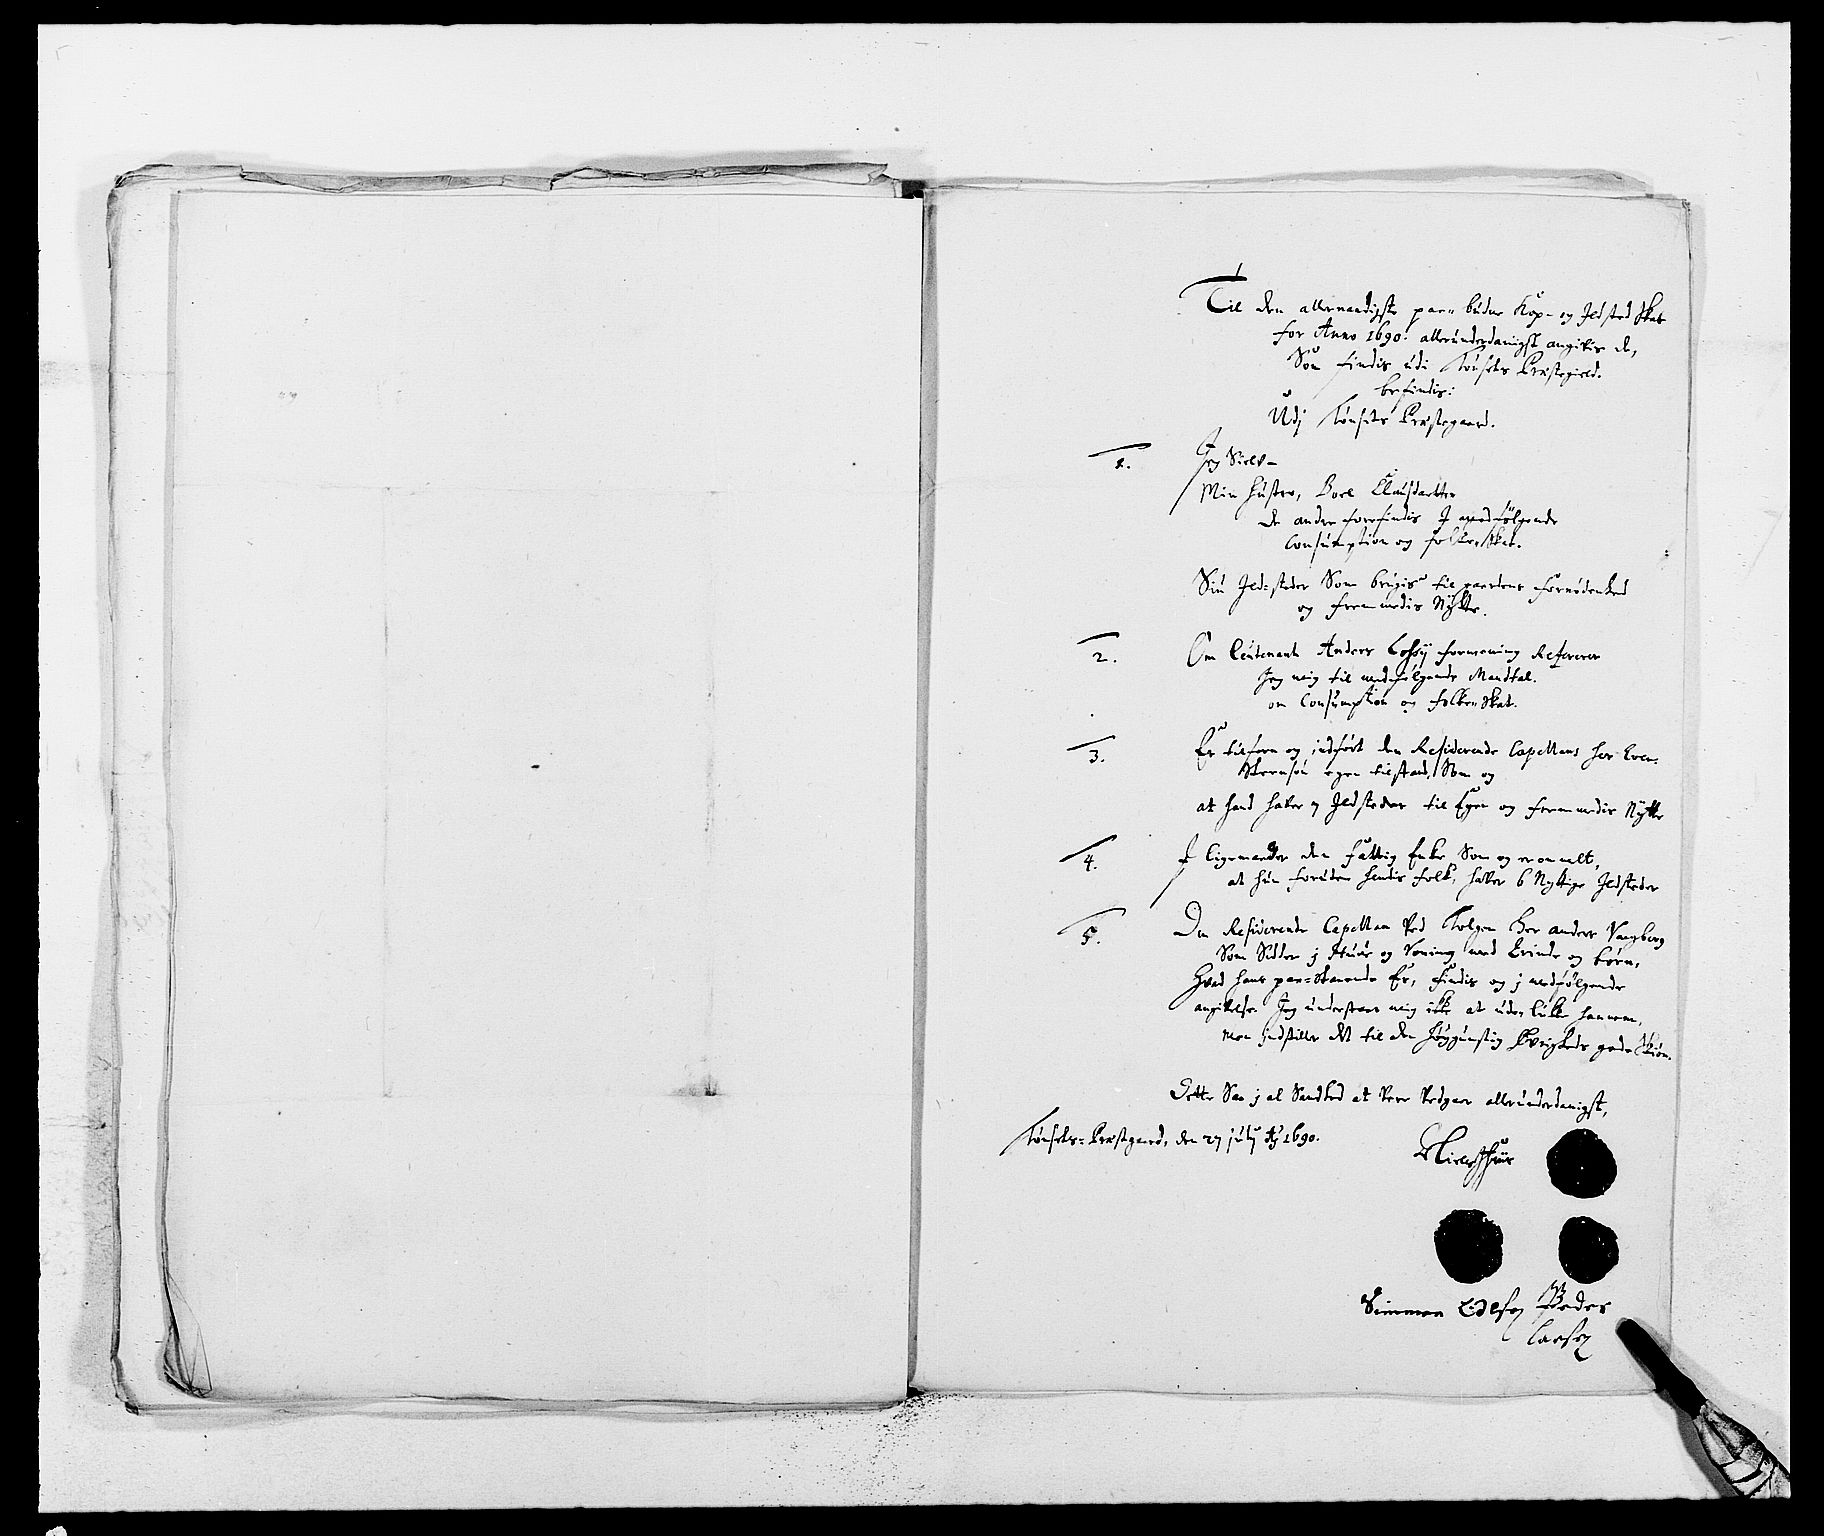 Til den allernaadigste paa budne Kop- og Jldsted Skat
for Anno 1690. allerunderdanigst angifvis de,
Som findis udi Tønsets Præstegield.
befindis:
Udj Tønsets Præstegaard.
1. Jeg Sielv-
Min Hustro, Boel Clausdaatter
de andre forefindis J medfølgende
Consumption og folcke Skat.
Siu Jld-steder Som brugis til gaardens fornødenhed
og fremmedis Nytte.
2. Om Leutenant Anders formening Refererer
Jeg mig til medfølgende Mandtal.
om Consumption og folke Skat.
3. Er tilforn og indført den Residerende Capellans her
egen tilstand, Som og
at hand haver 7 Jldsteder til Egen og fremmedis Nytte
4. J ligemaader den fattig Enke Som og er omelt,
at hun foruden hendis folk, haver 6 Nyttige Jldsteder
5. Den Residerende Capellan Ved Tolgen Her Anders Vangberg
Som Sidder j Huus og Voning med Qvinde og børn,
Hvad hans paa-Skaanende Er, findis og j medfølgende
angifvelse. Jeg understaar mig ikke at udelukke hannem,
Men Jndstiller det til den høygunstig Øvrigheds gode Skiøn.
Dette Saa j al Sandhed at Være Vedgaar allerunderdanigst,
Tønsets-Præstgaard, den 27 julij Ao 1690.
Simmen Peder
Larsøn